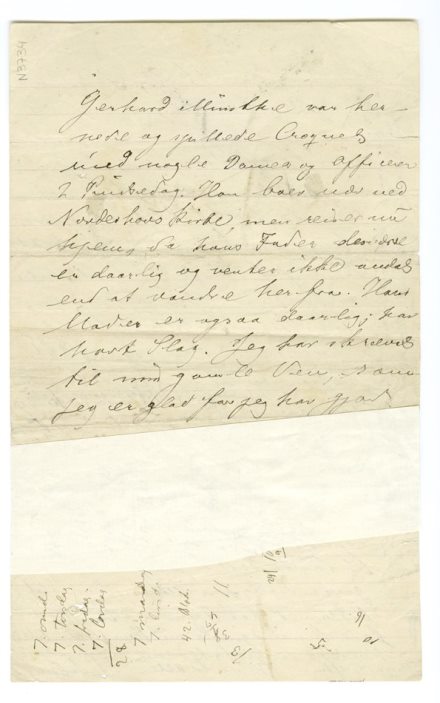 N3734
Gerhard Munthe var her-
nede og spillede Croquet
med nogle Damer og Officerer
2 Pindsedag. Han boer ude ved
Norderhovs Kirke, men reiser nu
hjem, da hans Fader desværre
er daarlig og venter ikke andet
end at vandre herfra. Hans
Moder er ogsaa daarlig; har
havt Slag. Jeg har skrevet
til min gamle Ven, som
jeg er glad for jeg har gjort
7. onsd
7. torsdag
7. fredag.
7. lørdag
28
7. mandag
7.
42.
11
13
16
10